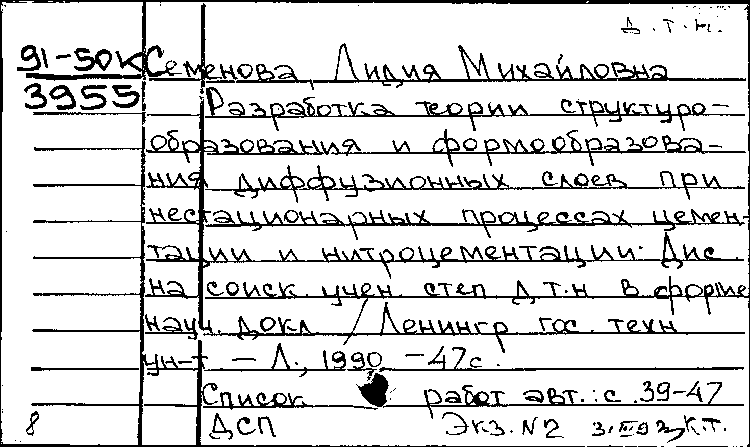 Д.Т.Н.
91-50К Семенова, Лидия Михайловна
3955 Разработка теории структуро-
образования и формообразова-
ния диффузионных слоев при
нестационарных процессах цемен-
тации и нитроцементации: Дис.
на соиск. учен. степ Д.Т.Н. в форме
науч. докл / Ленингр гос. техн
ун-т. – Л., 1990 – 47с.
Список работ авт.: с. 39-47
8 ДСП Экз. N2 К.Т.